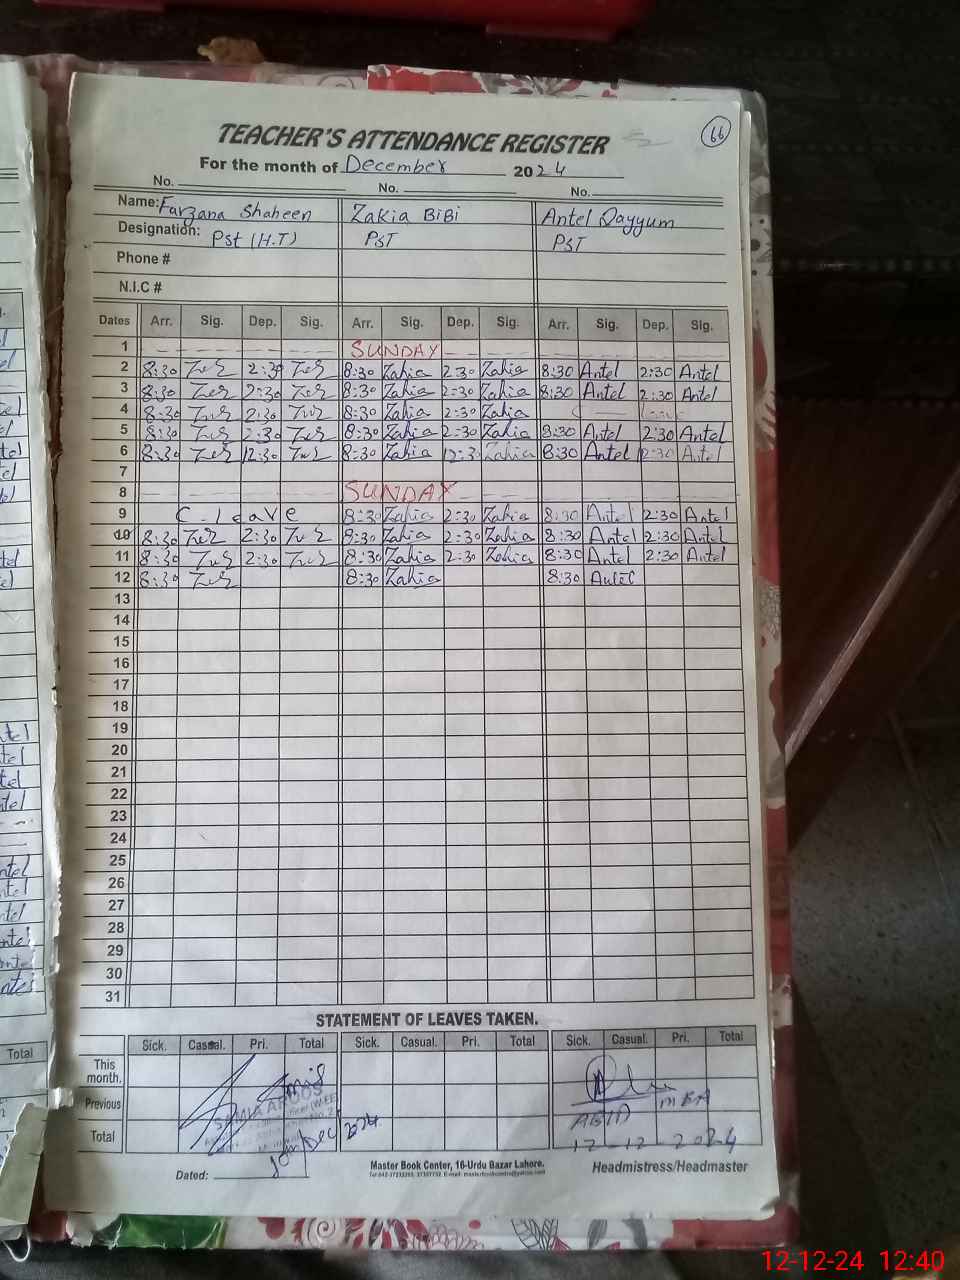 TEACHER'S ATTENDANCE REGISTER
66
For the month of December 2024
No. No. No.
Name: Farzana Shaheen Zakia BiBi Antel Qayyum
Designation: Pst (H.T) PST PST
Phone #
N.I.C #
Dates Arr. Sig. Dep. Sig. Arr. Sig. Dep. Sig. Arr. Sig. Dep. Sig.
1 SUNDAY
2 8:30 2:30 8:30 Zakia 2:30 Zakia 8:30 Antel 2:30 Antel
3 8:30 2:30 8:30 Zakia 2:30 Zakia 8:30 Antel 2:30 Antel
4 8:30 2:30 8:30 Zakia 2:30 Zakia C leave
5 8:30 2:30 8:30 Zakia 2:30 Zakia 8:30 Antel 2:30 Antel
6 8:30 12:30 8:30 Zakia 12:30 Zakia 8:30 Antel 12:30 Antel
7
8 SUNDAY
9 C - leave 8:30 Zakia 2:30 Zakia 8:30 Antel 2:30 Antel
10 8:30 2:30 8:30 Zakia 2:30 Zakia 8:30 Antel 2:30 Antel
11 8:30 2:30 8:30 Zakia 2:30 Zakia 8:30 Antel 2:30 Antel
12 8:30 8:30 Zakia 8:30 Antel
13
14
15
16
17
18
19
20
21
22
23
24
25
26
27
28
29
30
31
STATEMENT OF LEAVES TAKEN.
Sick. Casual. Pri. Total Sick. Casual. Pri. Total Sick. Casual. Pri. Total
This month.
Previous
SAMIA
ABID MEA
Total
Dec 2024
12-12-2024
Dated:
Master Book Center, 16-Urdu Bazar Lahore.
Headmistress/Headmaster
Total
12-12-24 12:40